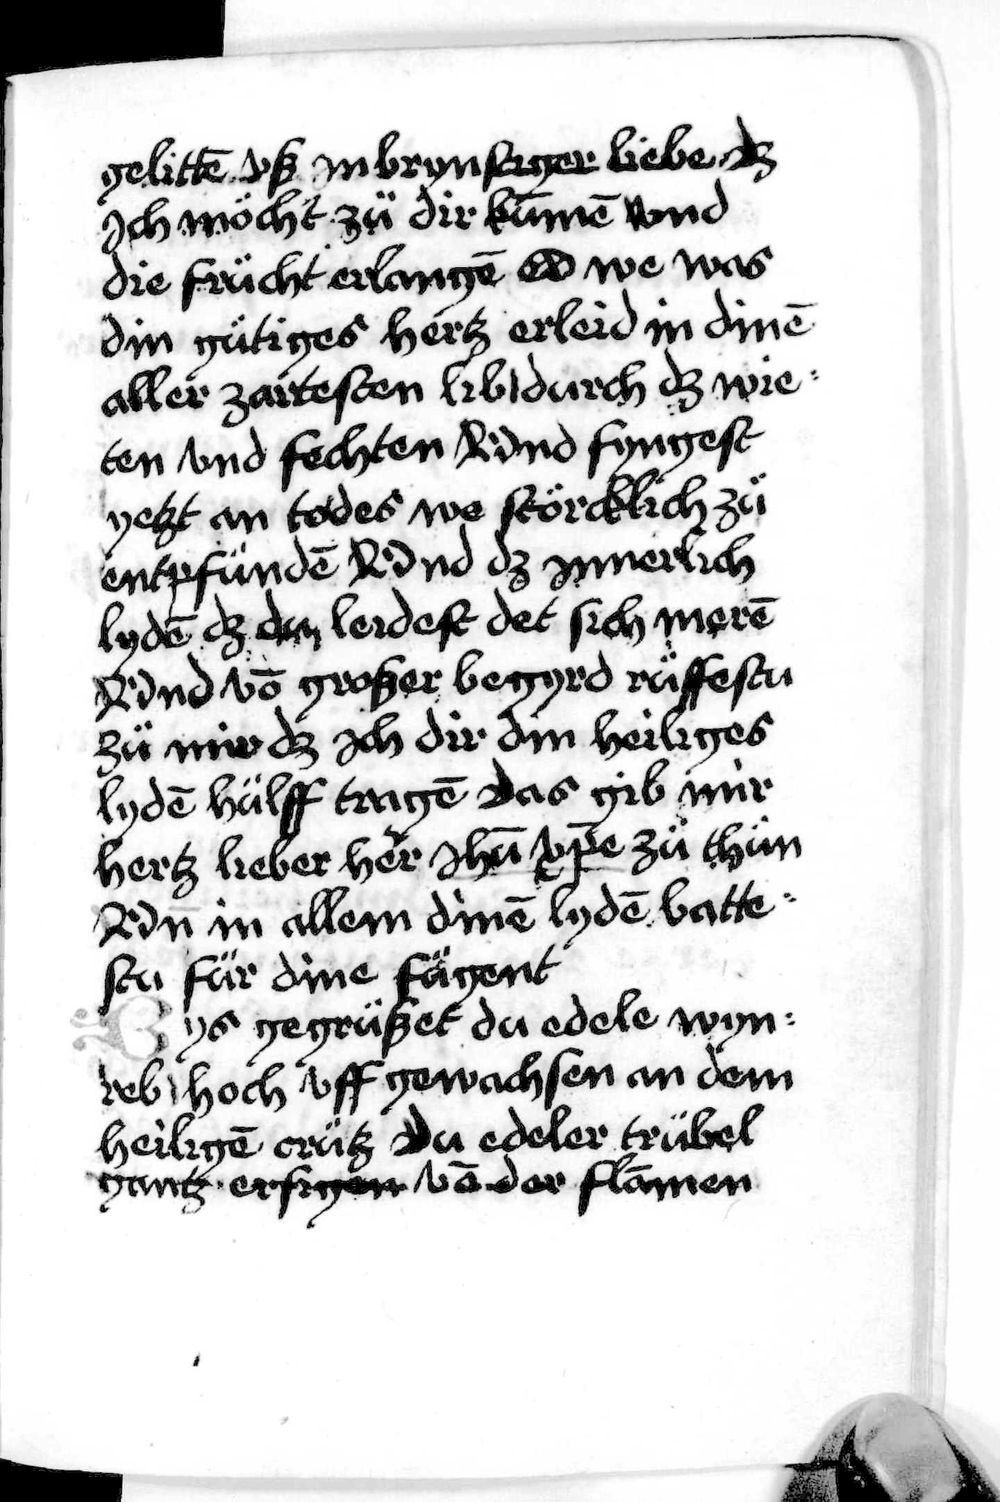 gelittē vß in brynstiger liebe dz
Ich möcht zü dir kūmē vnd
die frücht erlangē O we was
din gütiges hertz erleid in dinē
aller zartesten lib durch dz wie:
ten vnd fechten Vnd fyngest
yetzt an todes we störcklich zü
entpfündē Vnd dz innerlich
lydē dz du leidest det sich merē
Vnd vō großer begyrd rüffestu
zü mir dz Ich dir din heiliges
lydē hülff tragē Das gib mir
hertz lieber her Jhū xp̄e zü thün
Vn̄ in allem dinē lydē batte:
stu für dine fügent
Bys gegrüßet du edele wyn:
reb hoch vff gewachsen an dem
heiligē crütz Du edeler trübel
gantz ersigen vō der flāmen